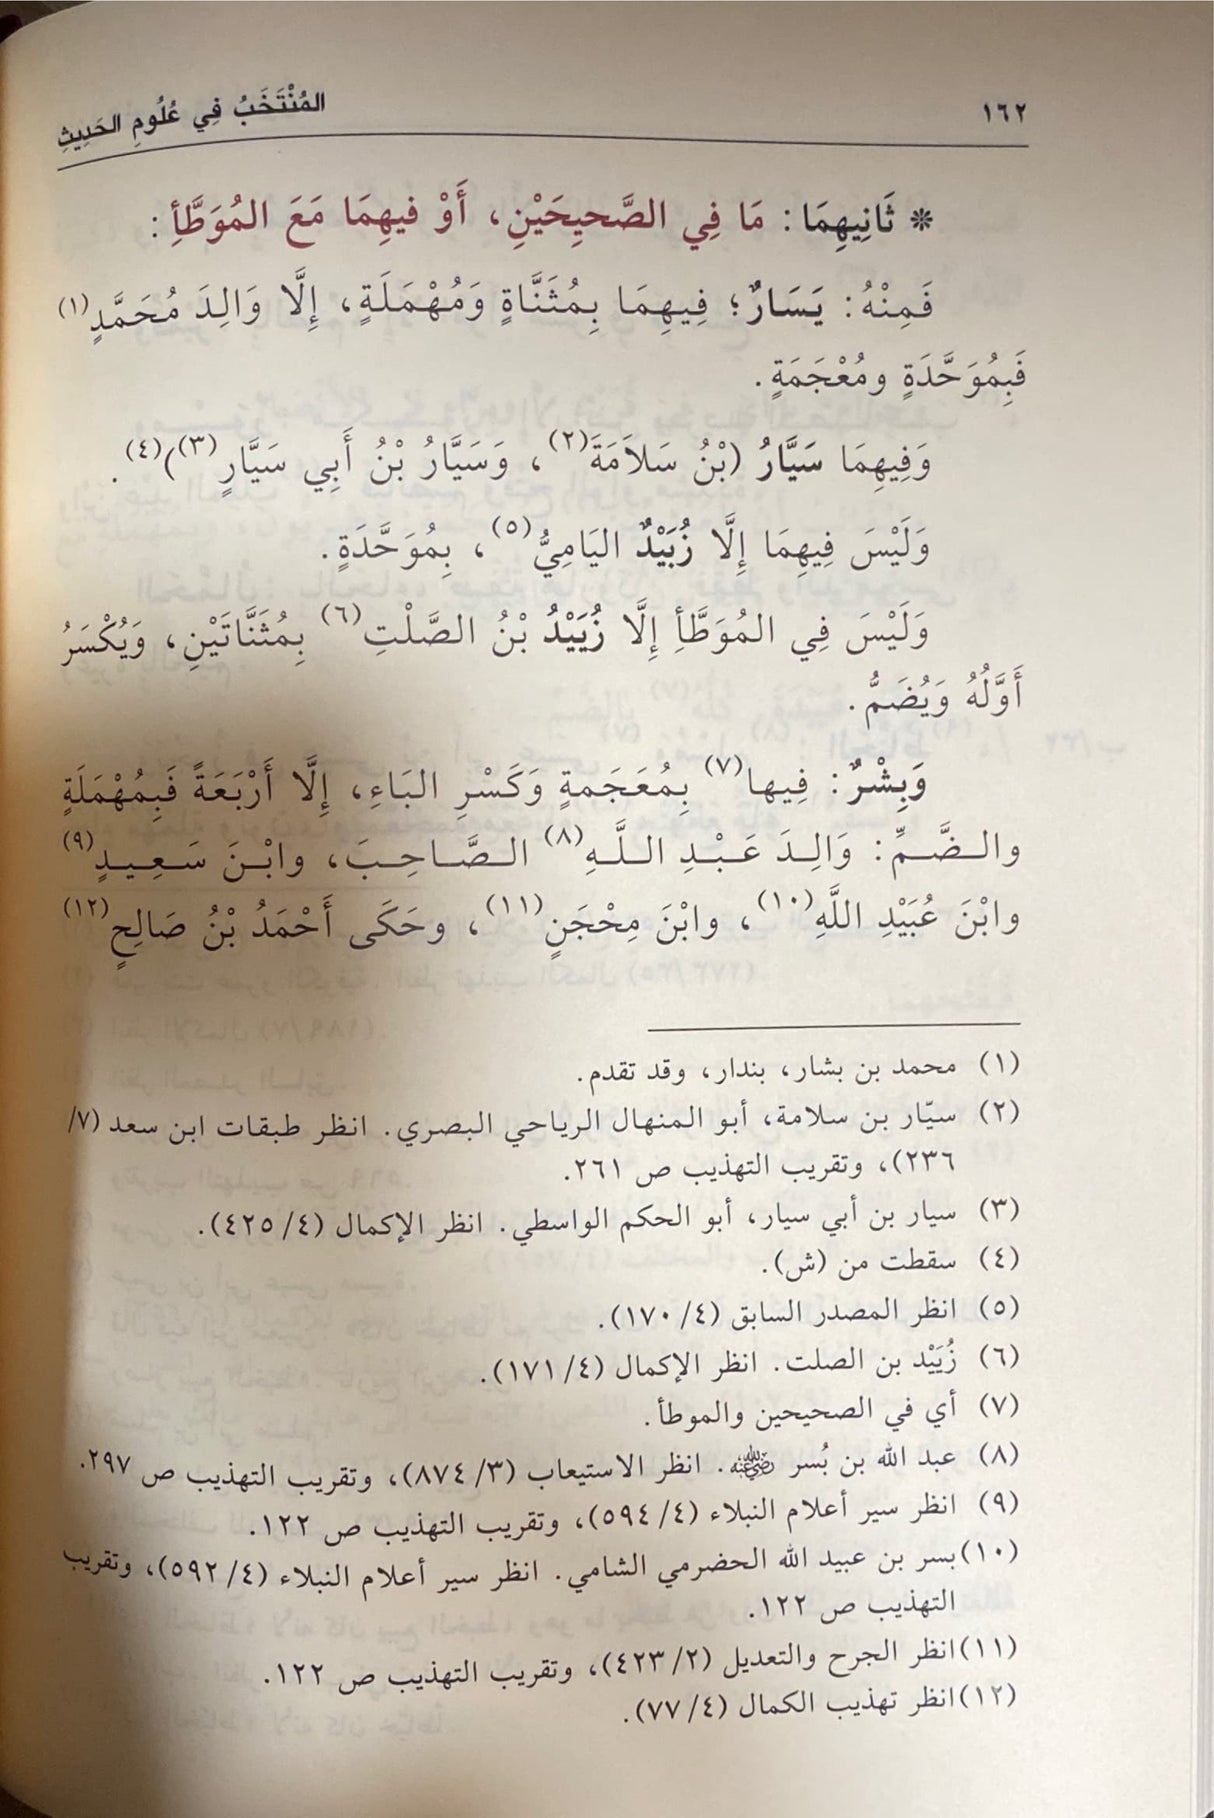 ١٦٢ المُنْتَخَبُ فِي عُلُومِ الحَدِيثِ
* ثَانِيهِمَا: مَا فِي الصَّحِيحَيْنِ، أَوْ فيهِمَا مَعَ المُوَطَّأِ:
فَمِنْهُ: يَسَارٌ؛ فِيهِمَا بِمُثَنَّاةٍ وَمُهْمَلَةٍ، إِلَّا وَالِدَ مُحَمَّدٍ(١)
فَبِمُوَحَّدَةٍ ومُعْجَمَةٍ.
وَفِيهِمَا سَيَّارُ (بْنُ سَلاَمَةَ(٢)، وَسَيَّارُ بْنُ أَبِي سَيَّارٍ(٣))(٤).
وَلَيْسَ فِيهِمَا إِلَّا زُبَيْدٌ اليَامِيُّ(٥)، بِمُوَحَّدَةٍ.
وَلَيْسَ فِي المُوَطَّأِ إِلَّا زُيَيْدُ بْنُ الصَّلْتِ(٦) بِمُثَنَّاتَيْنِ، وَيُكْسَرُ
أَوَّلُهُ وَيُضَمُّ.
وَبِشْرٌ: فِيها(٧) بِمُعَجَمةٍ وَكَسْرِ البَاءِ، إِلَّا أَرْبَعَةً فَبِمُهْمَلَةٍ
والضَّمِّ: وَالِدَ عَبْدِ اللَّهِ(٨) الصَّاحِبَ، وابْنَ سَعِيدٍ(٩)
وابْنَ عُبَيْدِ اللَّهِ(١٠)، وابْنَ مِحْجَنٍ(١١)، وحَكَى أَحْمَدُ بْنُ صَالِحٍ(١٢)
(١) محمد بن بشار، بندار، وقد تقدم.
(٢) سيّار بن سلامة، أبو المنهال الرياحي البصري. انظر طبقات ابن سعد (٧/
٢٣٦)، وتقريب التهذيب ص ٢٦١.
(٣) سيار بن أبي سيار، أبو الحكم الواسطي. انظر الإكمال (٤/ ٤٢٥).
(٤) سقطت من (ش).
(٥) انظر المصدر السابق (٤/ ١٧٠).
(٦) زُيَيْد بن الصلت. انظر الإكمال (٤/ ١٧١).
(٧) أي في الصحيحين والموطأ.
(٨) عبد الله بن بُسر رضي الله عنه. انظر الاستيعاب (٣/ ٨٧٤)، وتقريب التهذيب ص ٢٩٧.
(٩) انظر سير أعلام النبلاء (٤/ ٥٩٤)، وتقريب التهذيب ص ١٢٢.
(١٠) بسر بن عبيد الله الحضرمي الشامي. انظر سير أعلام النبلاء (٤/ ٥٩٢)، وتقريب
التهذيب ص ١٢٢.
(١١) انظر الجرح والتعديل (٢/ ٤٢٣)، وتقريب التهذيب ص ١٢٢.
(١٢) انظر تهذيب الكمال (٤/ ٧٧).